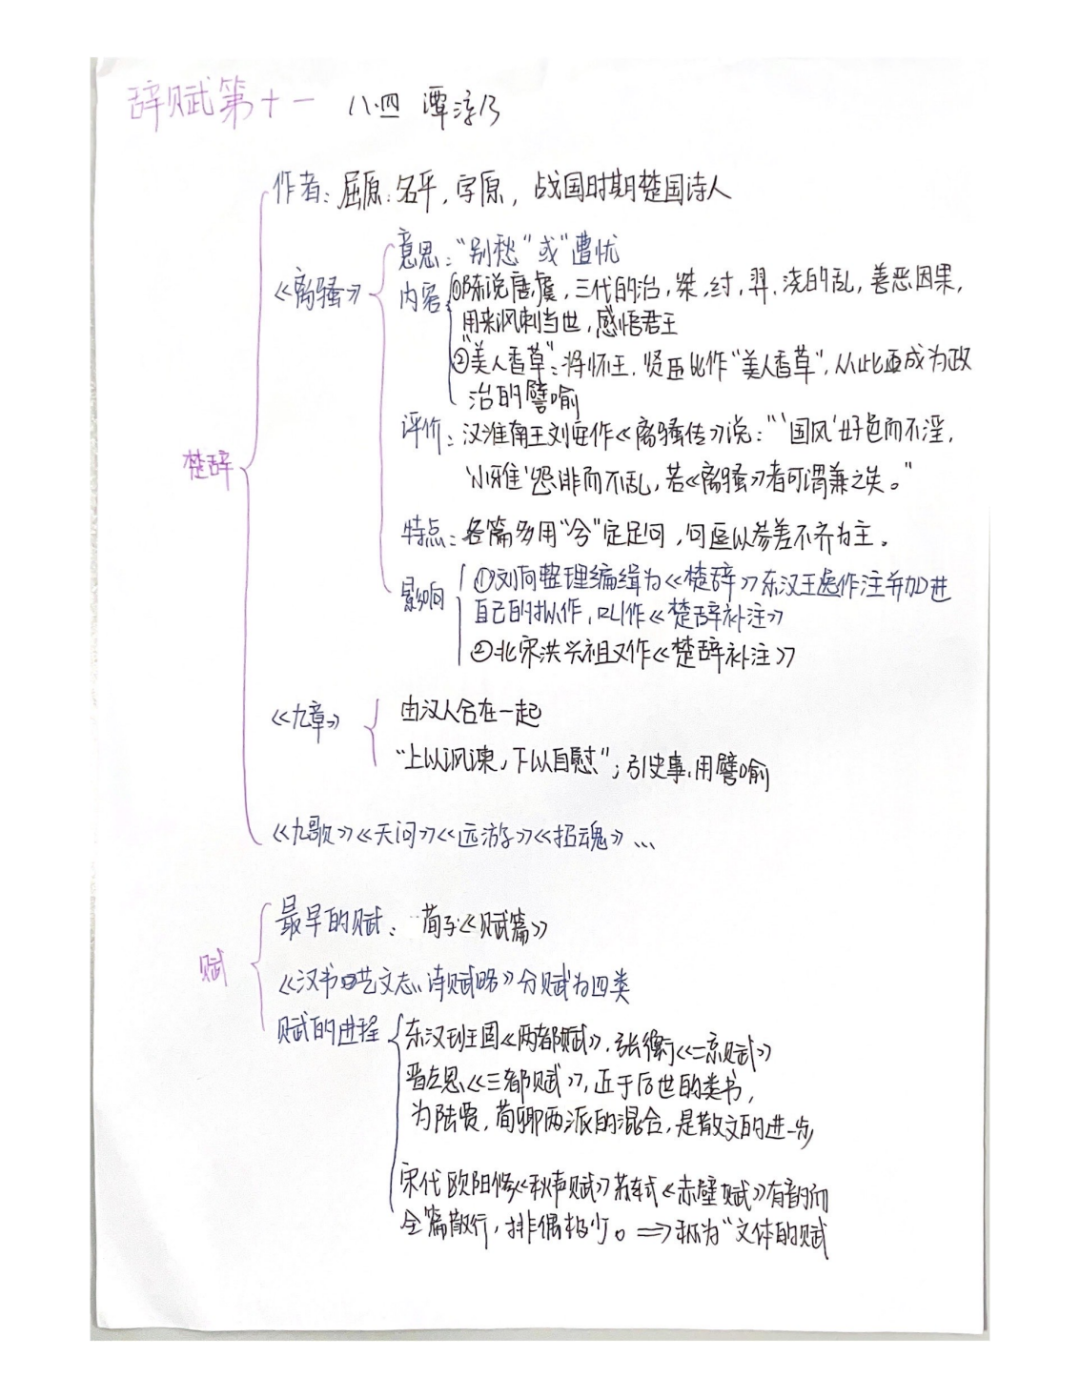 辞赋第十一 八.四 谭淳
作者：屈原：名平，字原，战国时期楚国诗人
楚辞
《离骚》
意思："别愁"或"遭忧
内容 ①陈说唐虞，三代的治，桀，纣，羿，浇的乱，善恶因果，
用来讽刺当世，感悟君王
②"美人香草"：将怀王，贤臣比作"美人香草"，从此更成为政
治的譬喻
评价：汉淮南王刘安作《离骚传》说："'国风'好色而不淫，
'小雅'怨诽而不乱，若《离骚》者可谓兼之矣。"
特点：各篇多用"兮"定足句，句逗以参差不齐为主。
影响 ①刘向整理编缉为《楚辞》东汉王逸作注并加进
自己的拟作，叫作《楚辞补注》
②北宋洪兴祖又作《楚辞补注》
《九章》
由汉人合在一起
"上以讽谏，下以自慰"；引史事，用譬喻
《九歌》《天问》《远游》《招魂》…
赋
最早的赋： 荀子《赋篇》
《汉书 艺文志 诗赋略》分赋为四类
赋的进程
东汉班固《两都赋》，张衡《二京赋》
晋左思《三都赋》，近于后世的类书，
为陆贾，荀卿两派的混合，是散文的进步
宋代欧阳修《秋声赋》苏轼《赤壁赋》有韵而
全篇散行，排偶极少。⇒称为"文体的赋